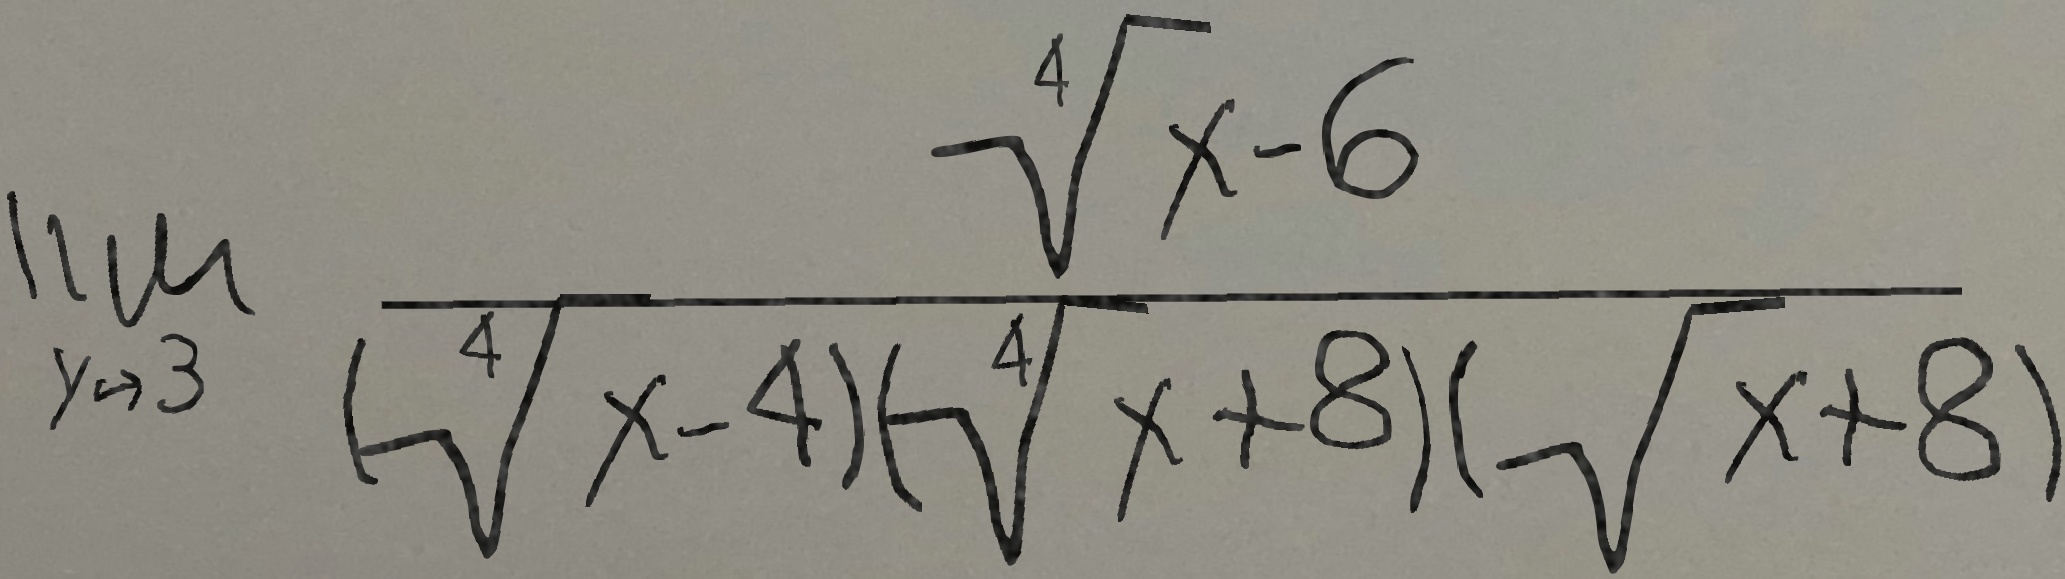 lim y→3 (∜x-6)/((∜x-4)(∜x+8)(√x+8))